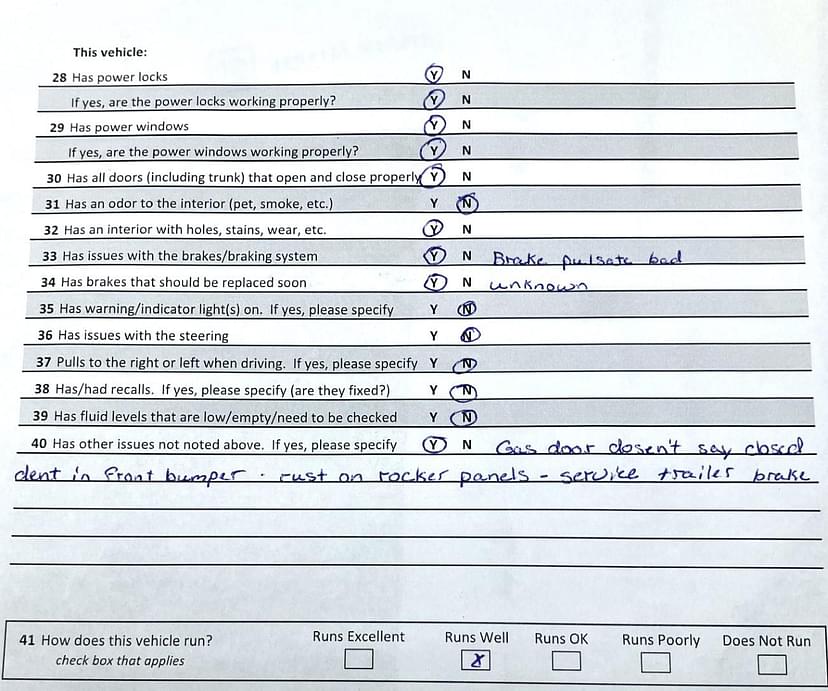 This vehicle:
28 Has power locks Y N
If yes, are the power locks working properly? Y N
29 Has power windows Y N
If yes, are the power windows working properly? Y N
30 Has all doors (including trunk) that open and close properly Y N
31 Has an odor to the interior (pet, smoke, etc.) Y N
32 Has an interior with holes, stains, wear, etc. Y N
33 Has issues with the brakes/braking system Y N Brake pulsate bad
34 Has brakes that should be replaced soon Y N unknown
35 Has warning/indicator light(s) on. If yes, please specify Y N
36 Has issues with the steering Y N
37 Pulls to the right or left when driving. If yes, please specify Y N
38 Has/had recalls. If yes, please specify (are they fixed?) Y N
39 Has fluid levels that are low/empty/need to be checked Y N
40 Has other issues not noted above. If yes, please specify Y N Gas door dosen't say closed
dent in front bumper · rust on rocker panels - service trailer brake
41 How does this vehicle run? Runs Excellent Runs Well Runs OK Runs Poorly Does Not Run
check box that applies X